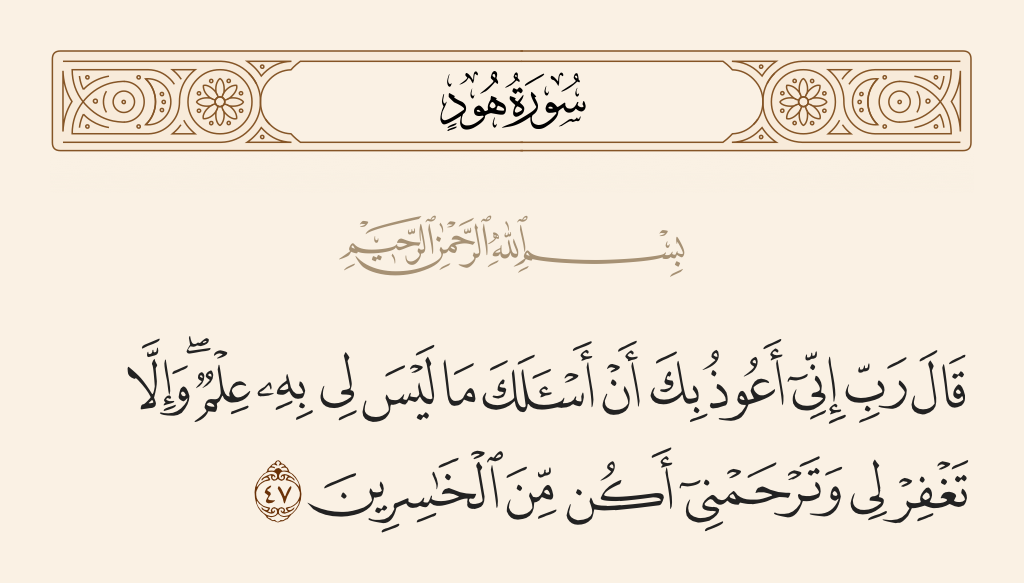 سُورَةُ هُودٍ
بِسْمِ ٱللَّهِ ٱلرَّحْمَٰنِ ٱلرَّحِيمِ
قَالَ رَبِّ إِنِّىٓ أَعُوذُ بِكَ أَنْ أَسْـَٔلَكَ مَا لَيْسَ لِى بِهِۦ عِلْمٌۭ ۖ وَإِلَّا
تَغْفِرْ لِى وَتَرْحَمْنِىٓ أَكُن مِّنَ ٱلْخَـٰسِرِينَ ٤٧